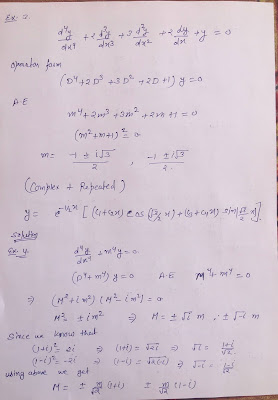 Ex: 3.
d⁴y/dx⁴ + 2 d³y/dx³ + 3 d²y/dx² + 2 dy/dx + y = 0
operator form
(D⁴ + 2D³ + 3D² + 2D + 1) y = 0
A.E
m⁴ + 2m³ + 3m² + 2m + 1 = 0
(m² + m + 1)² = 0
m = (-1 ± i√3)/2 , (-1 ± i√3)/2.
(Complex + Repeated)
y = e^(-1/2 x) [(C₁+C₂x) cos(√3/2 x) + (C₃+C₄x) sin(√3/2 x)].
Ex. 4. d⁴y/dx⁴ + m⁴y = 0
(D⁴ + m⁴) y = 0 A.E M⁴ + m⁴ = 0
⇒ (M² + i m²) (M² - i m²) = 0
M² = ± i m² ⇒ M = ± √i m , ± √-i m
Since we know that
(1+i)² = 2i ⇒ (1+i) = √2i ⇒ √i = (1+i)/√2
(1-i)² = -2i ⇒ (1-i) = √2(-i) ⇒ √-i = (1-i)/√2
using above we get
M = ± m/√2 (1+i) ± m/√2 (1-i)